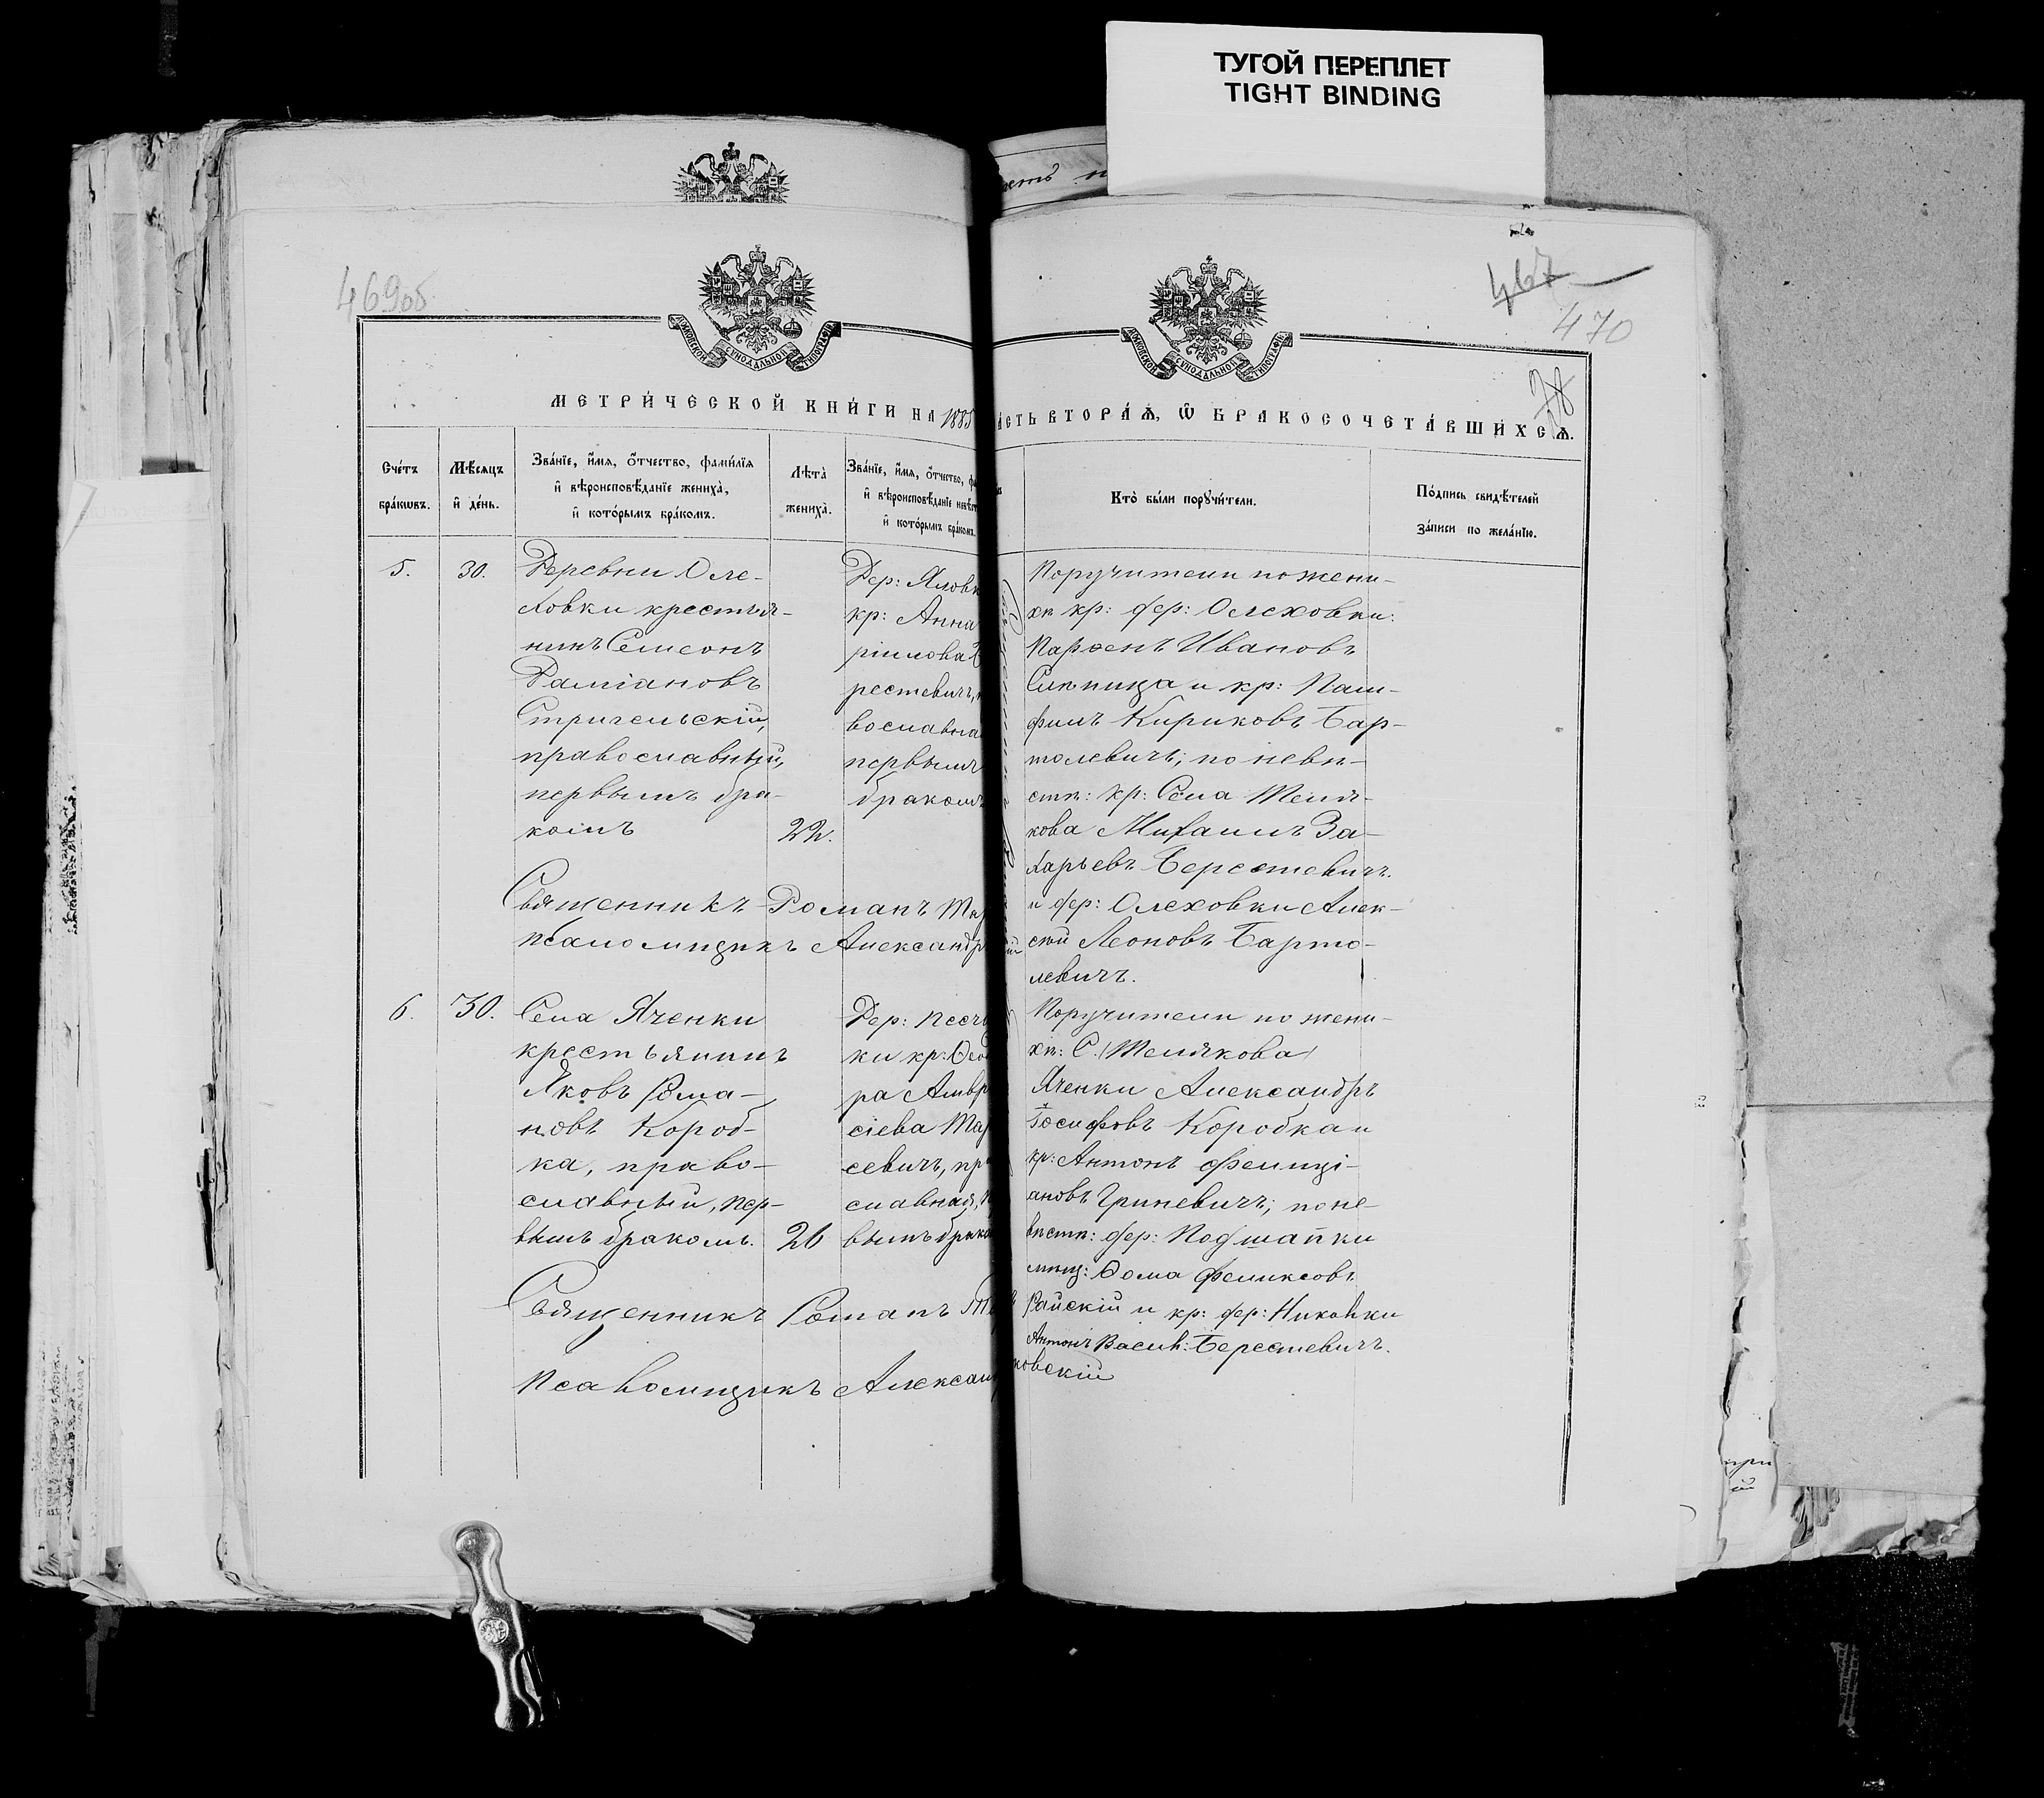 ТУГОЙ ПЕРЕПЛЕТ
TIGHT BINDING
469об
467
470
МОСКОВСКОЙ СУНОДАЛЬНОЙ ТИПОГРАФІИ
МОСКОВСКОЙ СУНОДАЛЬНОЙ ТИПОГРАФІИ
МЕТРИ́ЧЕСКОЙ КНИ́ГИ НА 1885
А́СТЬ ВТОРА́Ѧ, Ѡ҆ БРАКОСОЧЕТА́ВШИХСѦ.
Сче́тъ бра́кѡвъ.
Мѣ́сѧцъ и҆ де́нь.
Зва́нїе, и҆́мѧ, ѻ҆́тчество, фами́лїѧ
и҆ вѣроисповѣ́данїе жениха̀,
и҆ кото́рымъ бра́комъ.
Лѣта̀ жениха̀.
Зва́нїе, и҆́мѧ, ѻ҆́тчество, фа
и҆ вѣроисповѣ́данїе невѣст
и҆ кото́рымъ бра́комъ.
Кто̀ бы́ли порꙋчи́тели.
По́дпись свидѣ́телей
за́писи по жела́нїю.
5.
30.
Деревни Оле-
ловки крестья-
нинъ Семеонъ
Даміановъ
Стригельскій,
православный,
первымъ бра-
комъ
22.
Дер: Яловк
кр: Анна
ріилова
рестевичъ,
вославна
первымъ
бракомъ
Поручители по жени-
хѣ кр: дер: Олеховки:
Парѳенъ Ивановъ
Слѣпица и кр: Пам-
филъ Кириковъ Бар-
толевичъ; по невѣ-
стѣ: кр: Села Теля-
кова Михаилъ За-
харьевъ Берестевичъ
и дер: Олеховки Алек-
сѣй Леоновъ Барто-
левичъ.
Священникъ Романъ
псаломщикъ Александр
6.
30.
Села Яченки
крестьянинъ
Яковъ Рома-
новъ Короб-
ка, право-
славный, пер-
вымъ бракомъ.
26
Дер: Песч
ки кр: Ѳео
ра Амвр
сіева Ма
севичъ, пр
славная,
вымъ брако
Поручители по жени-
хѣ: С. (Телякова)
Яченки Александръ
Іосифовъ Коробка и
кр: Антонъ Фелиці-
ановъ Гриневичъ; по не-
вѣстѣ: дер: Подшапки
мѣщ: Ѳома Феликсовъ
Райскій и кр: дер: Никовки
Антонъ Васил: Берестевичъ.
Священникъ Романъ
Псаломщикъ Алексан
ковскій